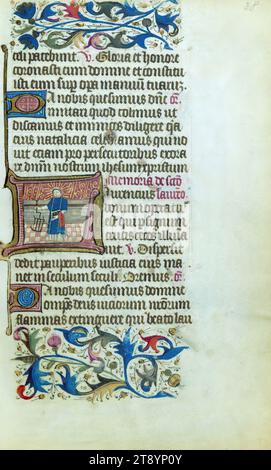 celi patebunt. v. Gloria et honore
coronasti eum domine et constitu
isti eum sup opa manuū tuaruz
Da nobis quesumus dne or.
imitari quod colimus ut
discamus et inimicos diligere quia
eius natalicia celebramus qui no
uit eciam pro persecutoribus exora
re dnm nostrum ihesum xpristum
Memoria de scō
urencius
bonum opus opera
dedit pauperibus iusticia eius ma
net in seculum seculi. Oremus.
Da nobis quesumus domine
omps deus uiciorum nrorum
flammas extinguere qui beato lau
alamy
Image ID: 2T8YP0Y
www.alamy.com